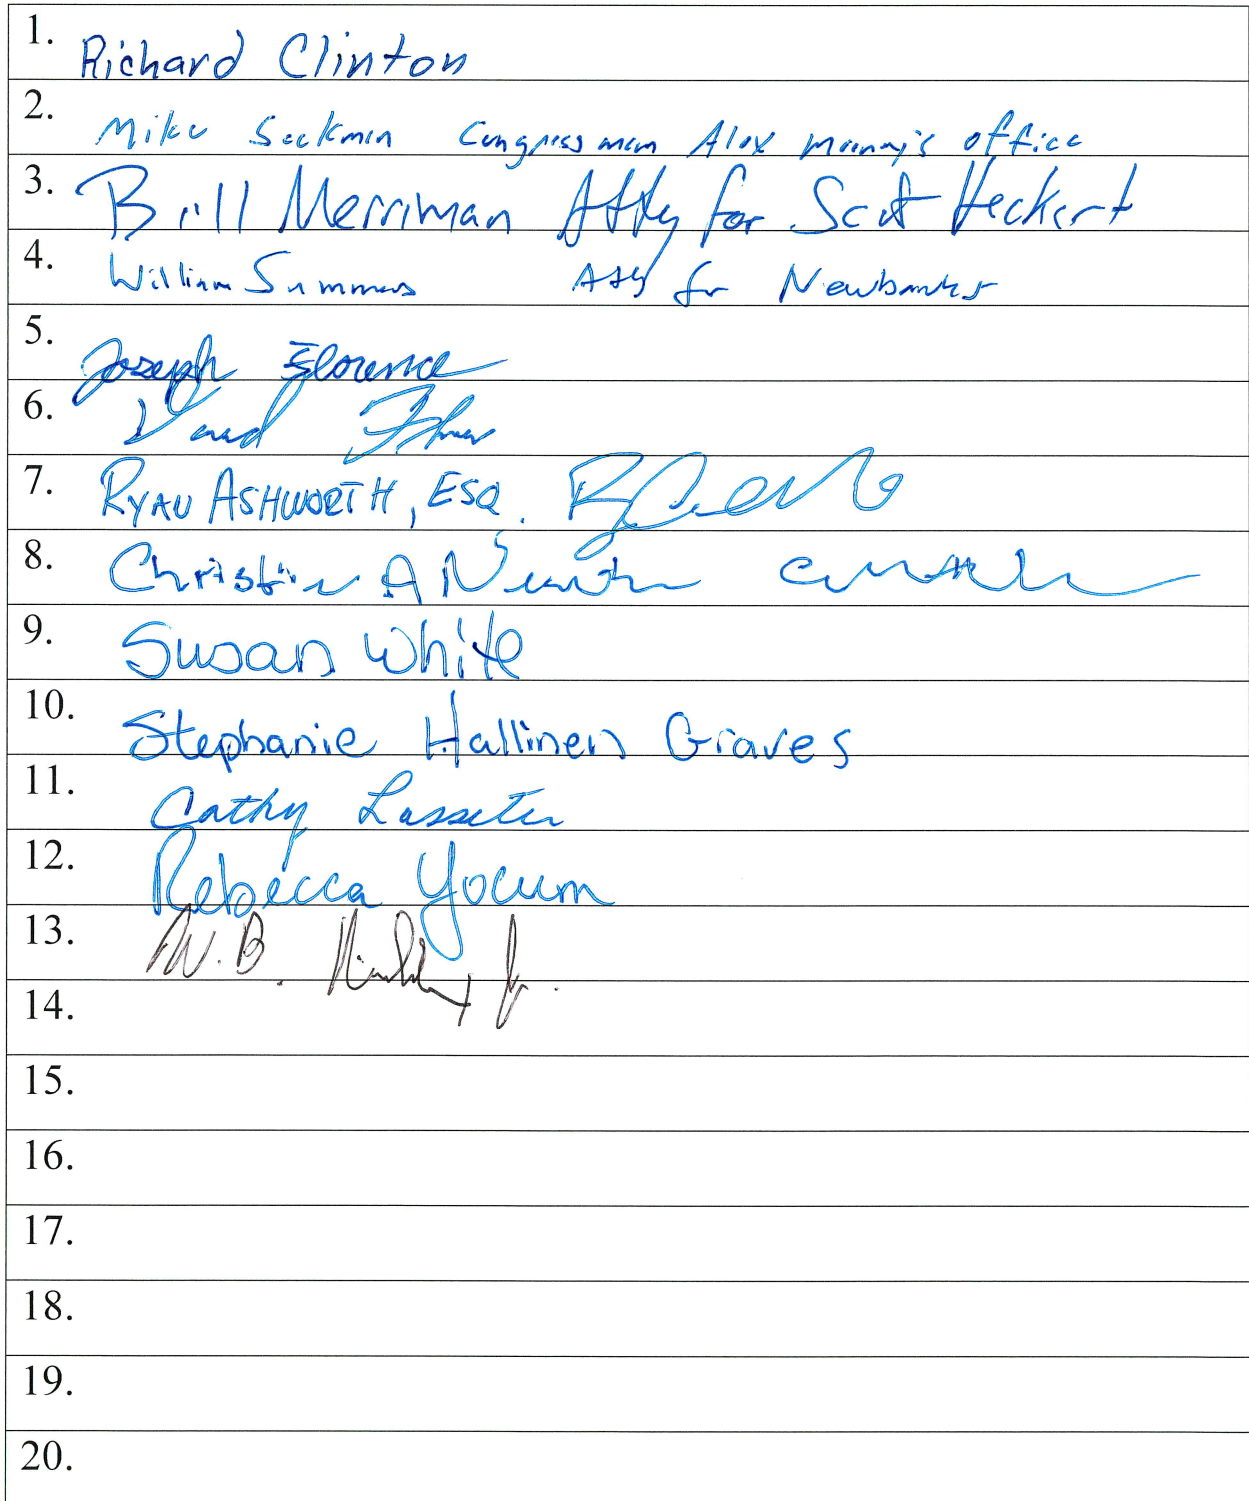 1. Richard Clinton
2. Mike Congressman Alex Mooney's office
3. Bill Merriman Atty for Scott Heckert
4. William Summers Atty for Newbanks
5. Joseph Florence
6. David
7. RYAN ASHWORTH, ESQ.
8. Christine A Newton
9. Susan White
10. Stephanie Hallinen Graves
11. Cathy Lasseter
12. Rebecca Yocum
13. W.B. Jr.
14.
15.
16.
17.
18.
19.
20.